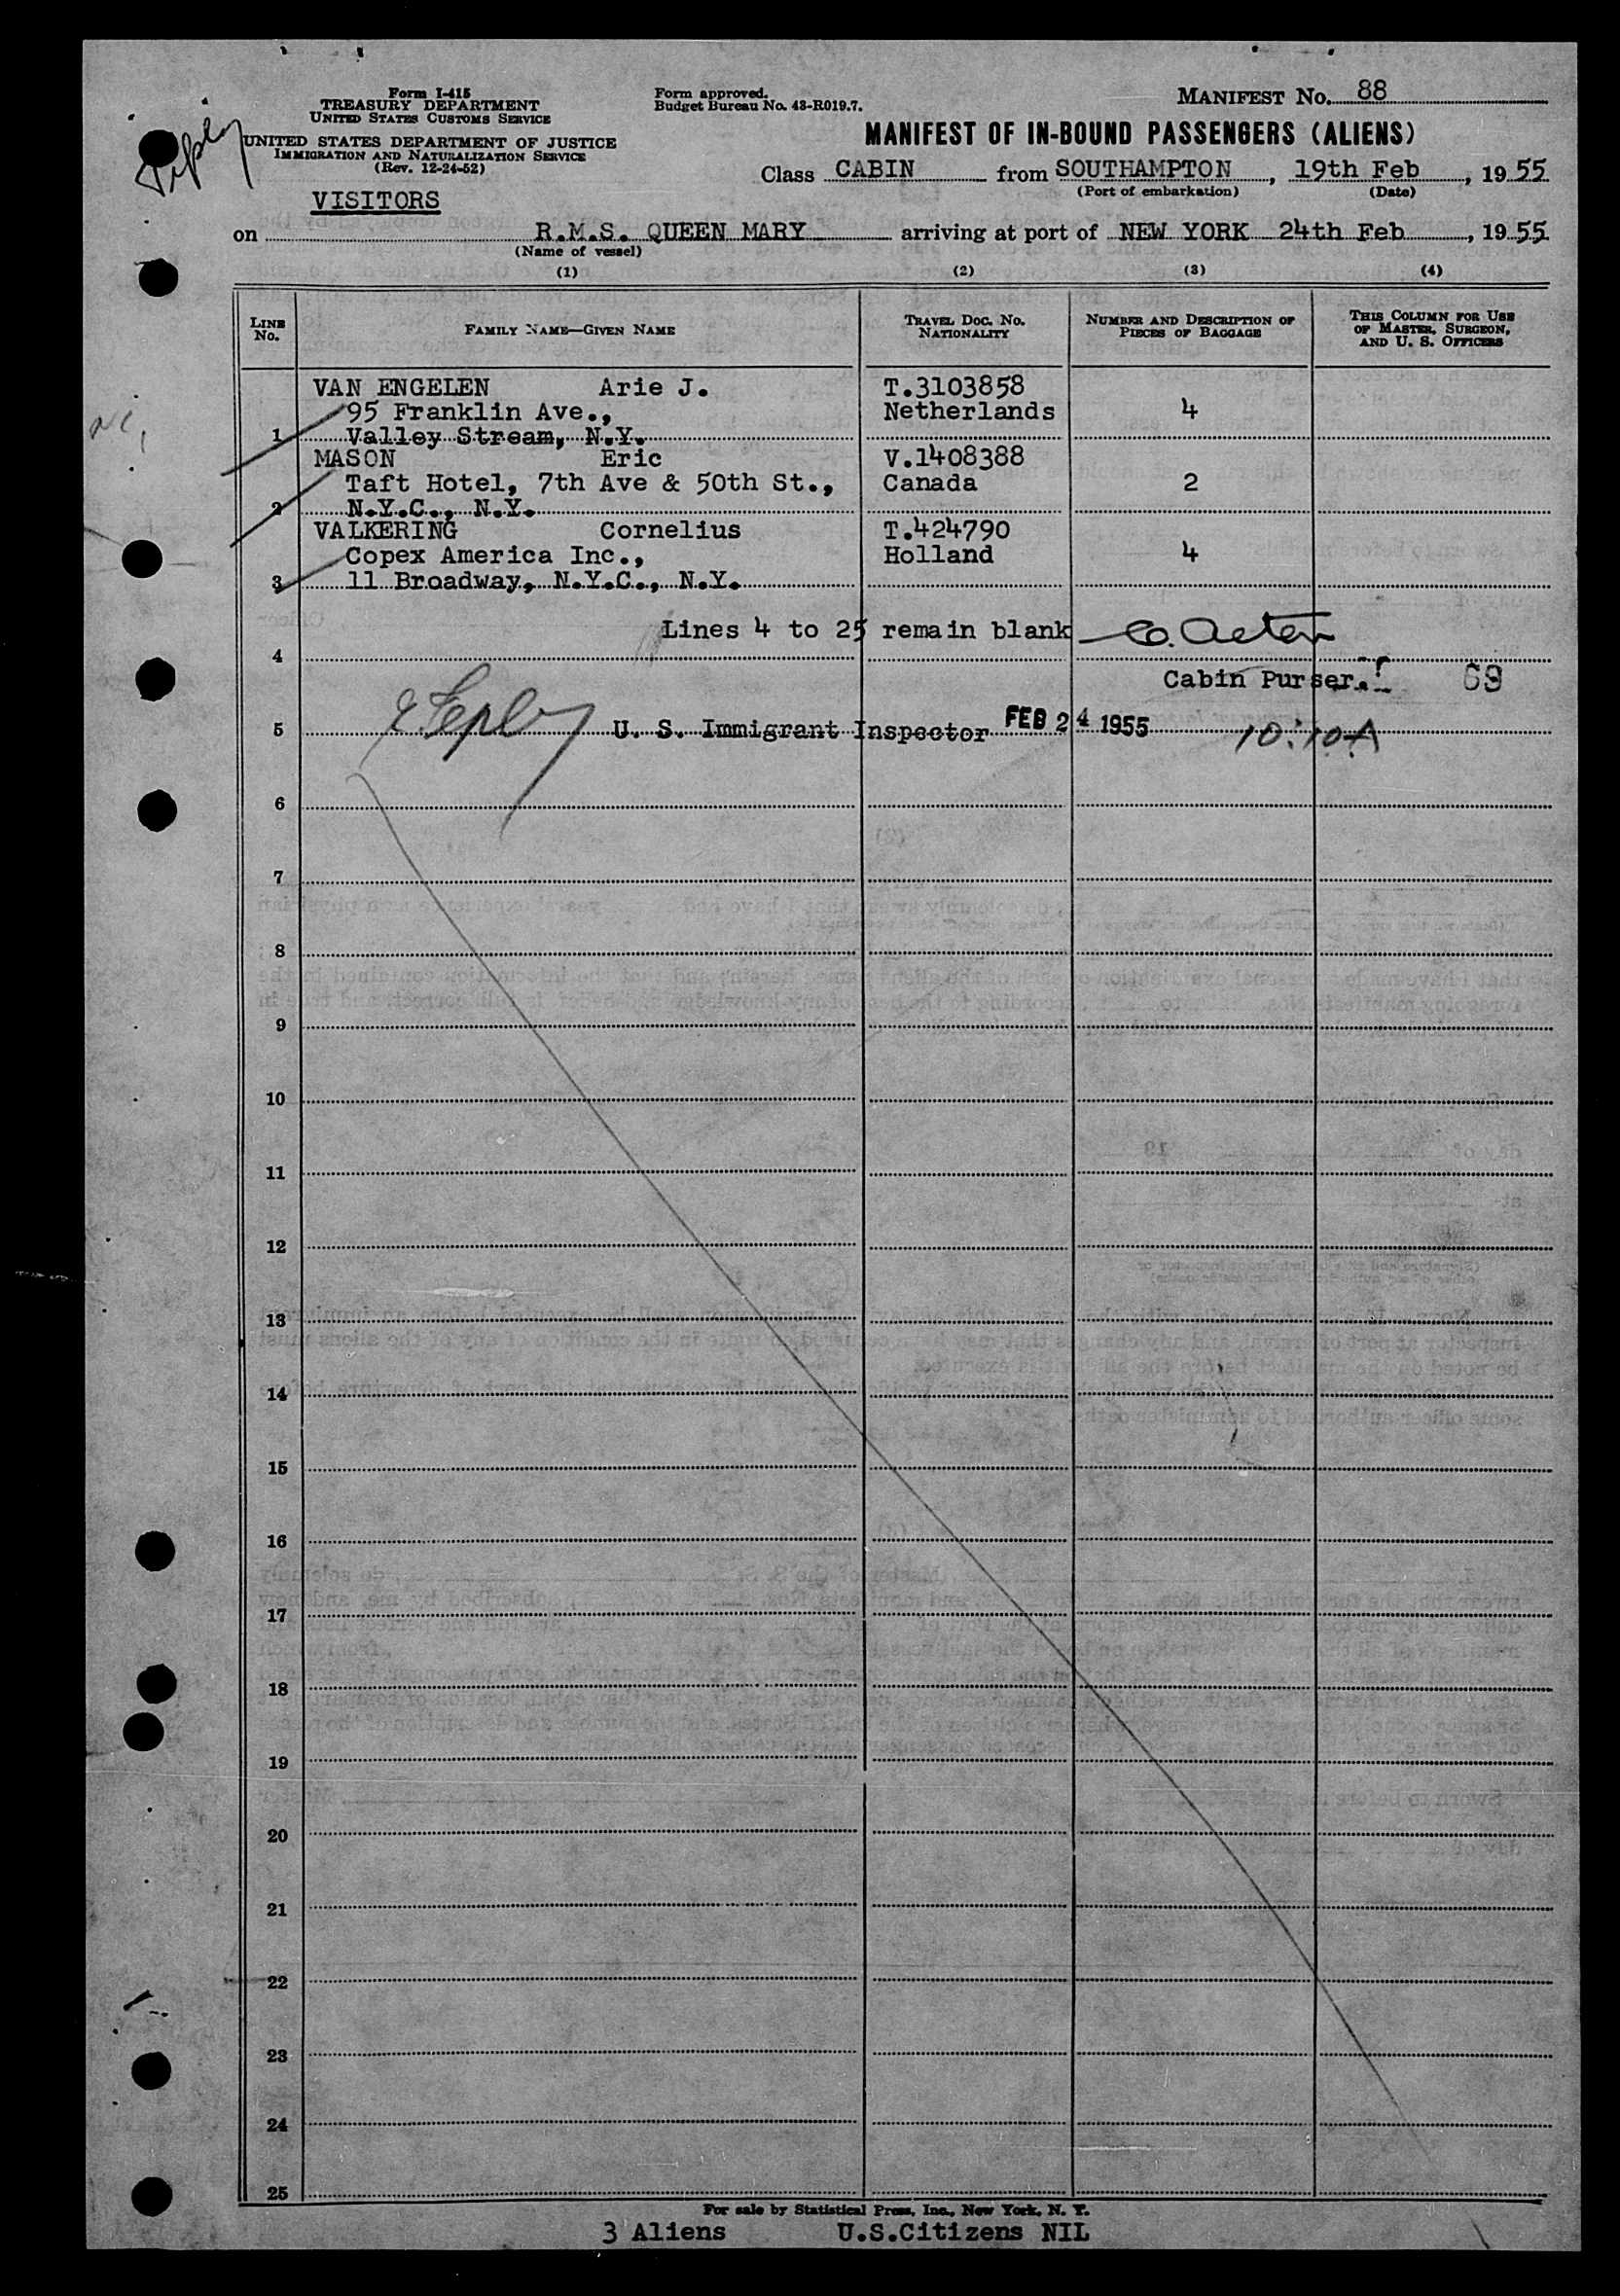 Form I-415
TREASURY DEPARTMENT
UNITED STATES CUSTOMS SERVICE
UNITED STATES DEPARTMENT OF JUSTICE
IMMIGRATION AND NATURALIZATION SERVICE
(Rev. 12-24-52)
VISITORS
Form approved.
Budget Bureau No. 43-R019.7.
MANIFEST No. 88
MANIFEST OF IN-BOUND PASSENGERS (ALIENS)
Class CABIN from SOUTHAMPTON, 19th Feb, 1955
(Port of embarkation) (Date)
on R.M.S. QUEEN MARY arriving at port of NEW YORK 24th Feb, 1955
(Name of vessel)
(1) (2) (3) (4)
LINE No. FAMILY NAME—GIVEN NAME TRAVEL DOC. NO. NATIONALITY NUMBER AND DESCRIPTION OF PIECES OF BAGGAGE THIS COLUMN FOR USE OF MASTER, SURGEON, AND U. S. OFFICERS
VAN ENGELEN Arie J. T.3103858
95 Franklin Ave., Netherlands 4
1 Valley Stream, N.Y.
MASON Eric V.1408388
Taft Hotel, 7th Ave & 50th St., Canada 2
2 N.Y.C., N.Y.
VALKERING Cornelius T.424790
Copex America Inc., Holland 4
3 11 Broadway, N.Y.C., N.Y.
Lines 4 to 25 remain blank
4
Cabin Purser.
5 U. S. Immigrant Inspector FEB 24 1955 10:10A
6
7
8
9
10
11
12
13
14
15
16
17
18
19
20
21
22
23
24
25
For sale by Statistical Press, Inc., New York, N. Y.
3 Aliens U.S.Citizens NIL